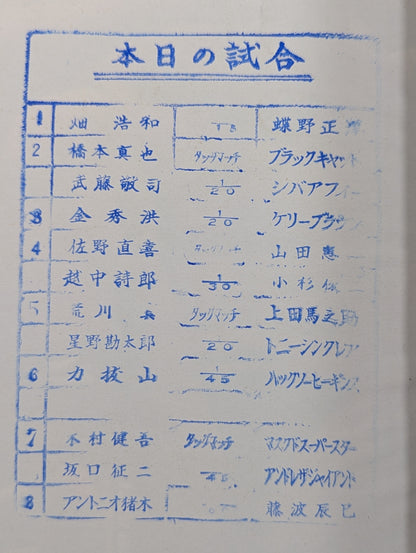 本日の試合
1 畑 浩和 1/15 蝶野正
2 橋本真也 タッグマッチ ブラックキャット
武藤敬司 1/20 シバアフィ
3 金秀洪 1/20 ケリーブラウン
4 佐野直喜 タッグマッチ 山田恵
越中詩郎 1/30 小杉俊
5 荒川 タッグマッチ 上田馬之助
星野勘太郎 1/20 トニーシンクレア
6 力抜山 1/45 ハックソーヒーギンス
7 木村健吾 タッグマッチ マスクドスーパースター
坂口征二 1/45 アンドレザジャイアント
8 アントニオ猪木 藤波辰巳